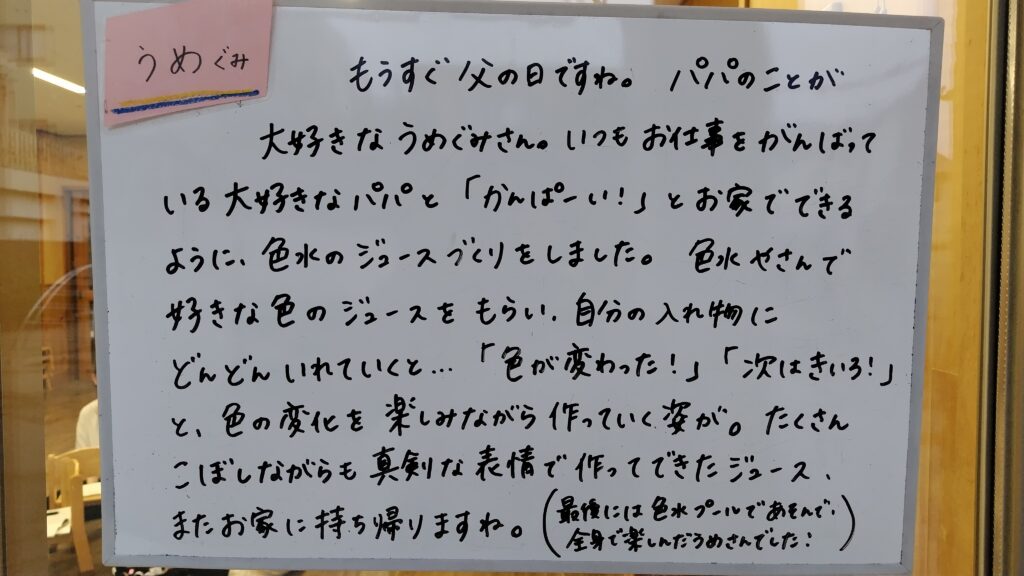 うめぐみ
もうすぐ父の日ですね。 パパのことが
大好きなうめぐみさん。いつもお仕事をがんばって
いる大好きなパパと「かんぱーい!」とお家でできる
ように、色水のジュースづくりをしました。 色水やさんで
好きな色のジュースをもらい、自分の入れ物に
どんどんいれていくと…「色が変わった!」「次はきいろ!」
と、色の変化を楽しみながら作っていく姿が。たくさん
こぼしながらも真剣な表情で作ってできたジュース、
またお家に持ち帰りますね。
(最後には色水プールであそんで、
全身で楽しんだうめさんでした!)